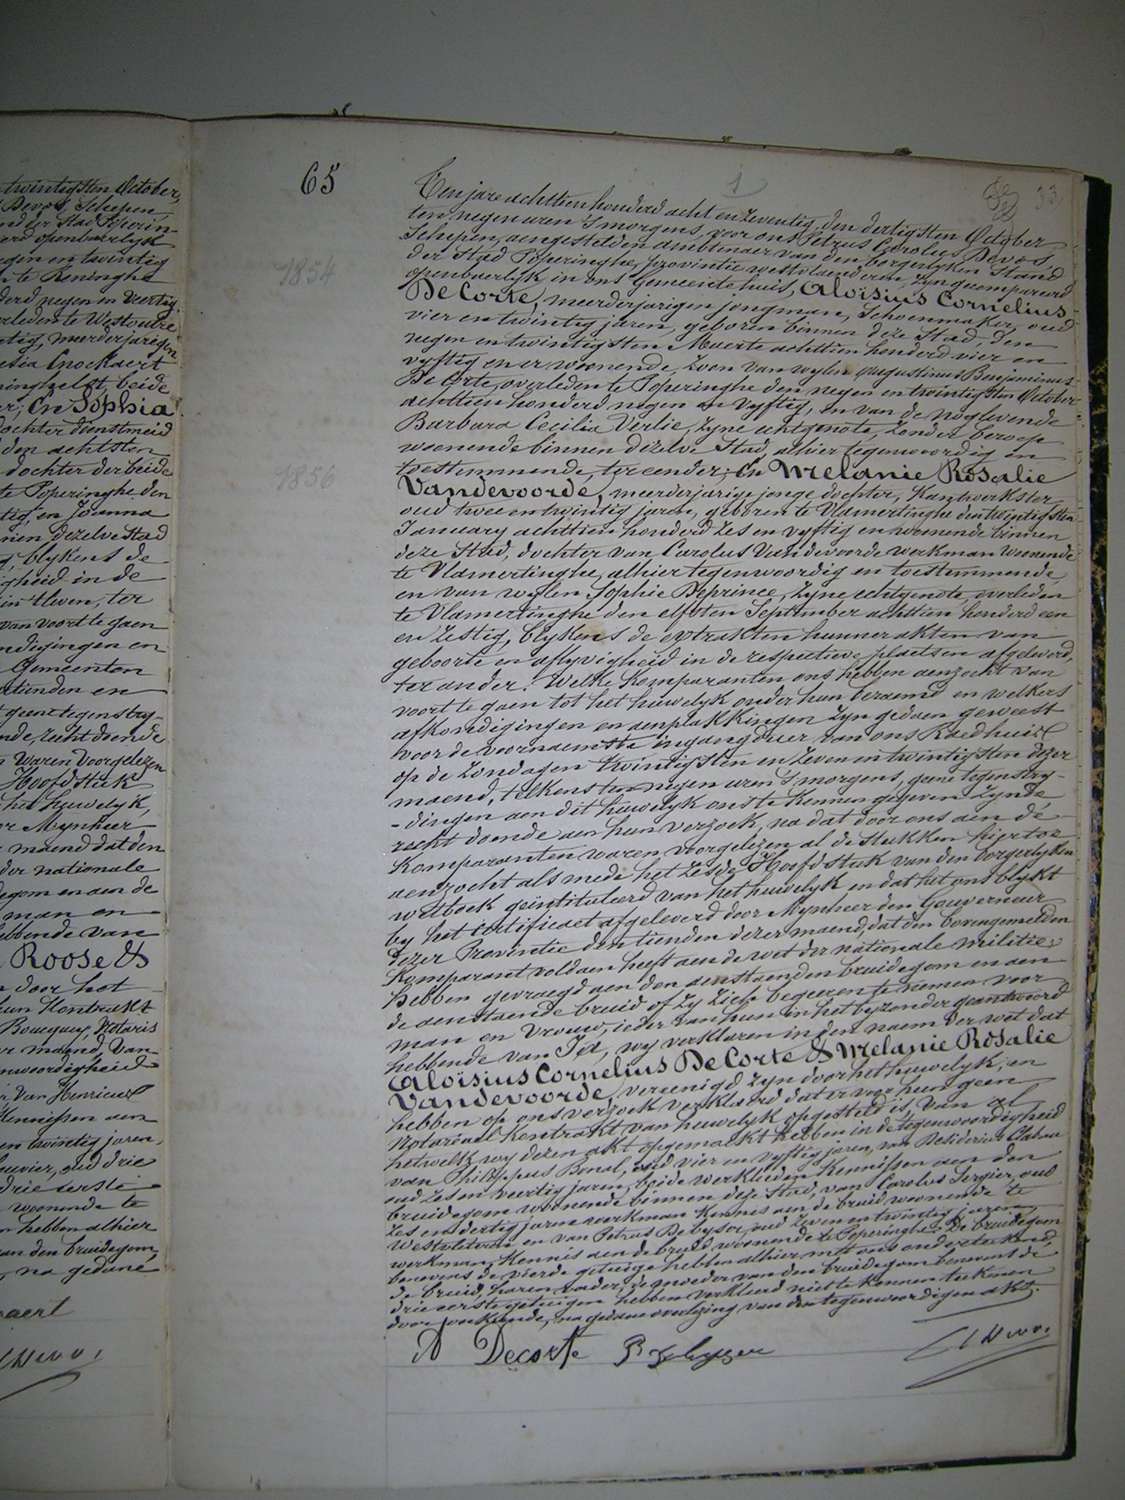 twintigsten October,
Devos, Schepen
nd der Stad Poperin-
openbaerlyk
en twintig
te Reninghe
negen en veertig
overleden te Westoutre
meerderjaregen
Cnockaert
beide
En Sophia
dochter dienstmeid
den achtsten
dochter der beide
te Poperinghe den
en Joanna
binnen dezelve Stad
blykens de
gheid in de
ter
van voort te gaen
ndigingen en
Gemeenten
en
geene tegenstry-
nde, recht doende
waren voorgelezen
Hoofdstuk
het huwelyk,
Mynheer
maend dat den
der nationale
degom en aen de
man en
hebbende van
Roose &
door het
hun Kontrakt
Notaris
maend van
nwoordigheid
van Henricus
Kennissen aen
en twintig jaren,
oud drie
drie eerste
woonende te
hebben alhier
van den bruidegom,
na gedane
aert
65
1
33
1854
1856
Ten jare achttien honderd acht en zeventig, den dertigsten October
ten negen uren 's morgens, voor ons Petrus Carolus Devos,
Schepen, aengestelden ambtenaer van den borgerlyken Stand
der Stad Poperinghe, provintie westvlaenderen, zyn gecompareerd
openbaerlyk in ons Gemeentehuis, Aloisius Cornelius
De Corte, meerderjarigen jongman, Schoenmaker, oud
vier en twintig jaren, geboren binnen deze Stad, den
negen en twintigsten Maerte achttien honderd vier en
vyftig en er woonende, zoon van wylen Augustinus Benjaminus
De Corte, overleden te Poperinghe den negen en twintigsten October
achttien honderd negen en vyftig, en van de nog levende
Barbara Cecilia Verlie, zyne echtgenote, zonder beroep
woonende binnen dezelve Stad, alhier tegenwoordig en
toestemmende, ter eender; En Melanie Rosalie
Vandevoorde, meerderjarige jonge dochter, Kantwerkster
oud twee en twintig jaren, geboren te Vlamertinghe den twintigsten
January achttien honderd zes en vyftig en woonende binnen
deze Stad, dochter van Carolus Vandevoorde werkman woonende
te Vlamertinghe, alhier tegenwoordig en toestemmende,
en van wylen Sophie Deprince, zyne echtgenote, overleden
te Vlamertinghe den elfsten September achttien honderd een
en zestig, blykens de extrakten hunner akten van
geboorte en aflyvigheid in de respectieve plaetsen afgeleverd,
ter ander. Welke Komparanten ons hebben aenzocht van
voort te gaen tot het huwelyk onder hun beraemd en welkers
afkondigingen en aenplakkingen zyn gedaen geweest
voor de voornaemste ingangdeur van ons Raedhuis
op de zondagen twintigsten en zeven en twintigsten dezer
maend, telkens ten negen uren 's morgens, geene tegenstry-
-dingen aen dit huwelyk ons te Kennen gegeven zynde
recht doende aen hun verzoek, na dat door ons aen de
Komparanten waren voorgelezen al de Stukken hiertoe
aenzocht als mede het zesde Hoofdstuk van den borgerlyken
wetboek geïntituleerd van het huwelyk en dat het ons blykt
by het certificaet afgeleverd door Mynheer den Gouverneur
dezer Provintie den tienden dezer maend, dat den bovengemelden
Komparant voldaen heeft aen de wet der nationale militie,
hebben gevraegd aen den aenstaenden bruidegom en aen
de aenstaende bruid of zy zich begeeren te nemen voor
man en vrouw, ieder van hun in het byzonder geantwoord
hebbende van Ja, wy verklaren in den naem der wet dat
Aloisius Cornelius De Corte & Melanie Rosalie
Vandevoorde, vereenigd zyn door het huwelyk, en
hebben op ons verzoek verklaerd dat er voor hun geen
Notariael Kontrakt van huwelyk opgesteld is, van al
hetwelk wy dezen akt opgemaekt hebben in de tegenwoordigheid
van Philippus Bonal, oud vier en vyftig jaren, van Desiderius
oud zes en veertig jaren, beide werklieden Kennissen aen den
bruidegom woonende binnen deze Stad, van Carolus Sergier, oud
zes en dertig jaren werkman Kennis aen de bruid woonende te
Westvleteren en van Petrus Debyser, oud zeven en twintig jaren,
werkman, Kennis aen de bruid, woonende te Poperinghe. De bruidegom
benevens de vierde getuige hebben alhier met ons onderteekend,
de bruid, haren vader, de moeder van den bruidegom benevens de
drie eerste getuigen hebben verklaerd niet te kennen teekenen
door onkunde, na gedane voorlezing van den tegenwoordigen akt.
A Decorte P Debyser Devos